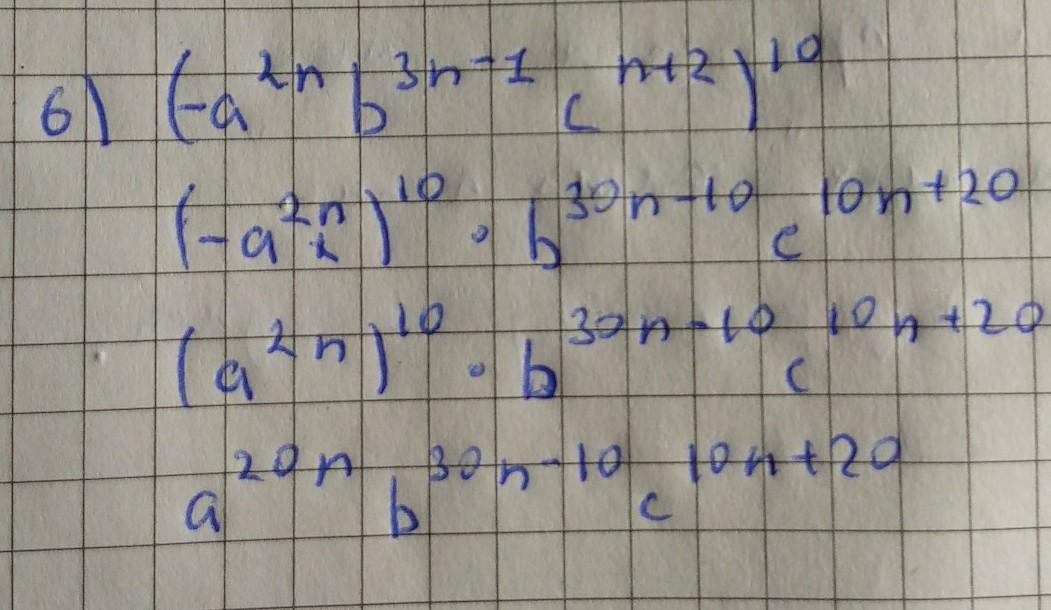 6) (-a^{2n} b^{3n-1} c^{n+2})^{10}
(-a^{2n})^{10} · b^{30n-10} c^{10n+20}
(a^{2n})^{10} · b^{30n-10} c^{10n+20}
a^{20n} b^{30n-10} c^{10n+20}